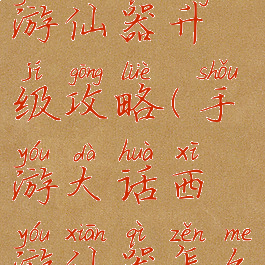 游仙器升
jí gōng lüè shǒu
级攻略(手
yóu dà huà xī
游大话西
yóu xiān qì zěn me
游仙器怎么